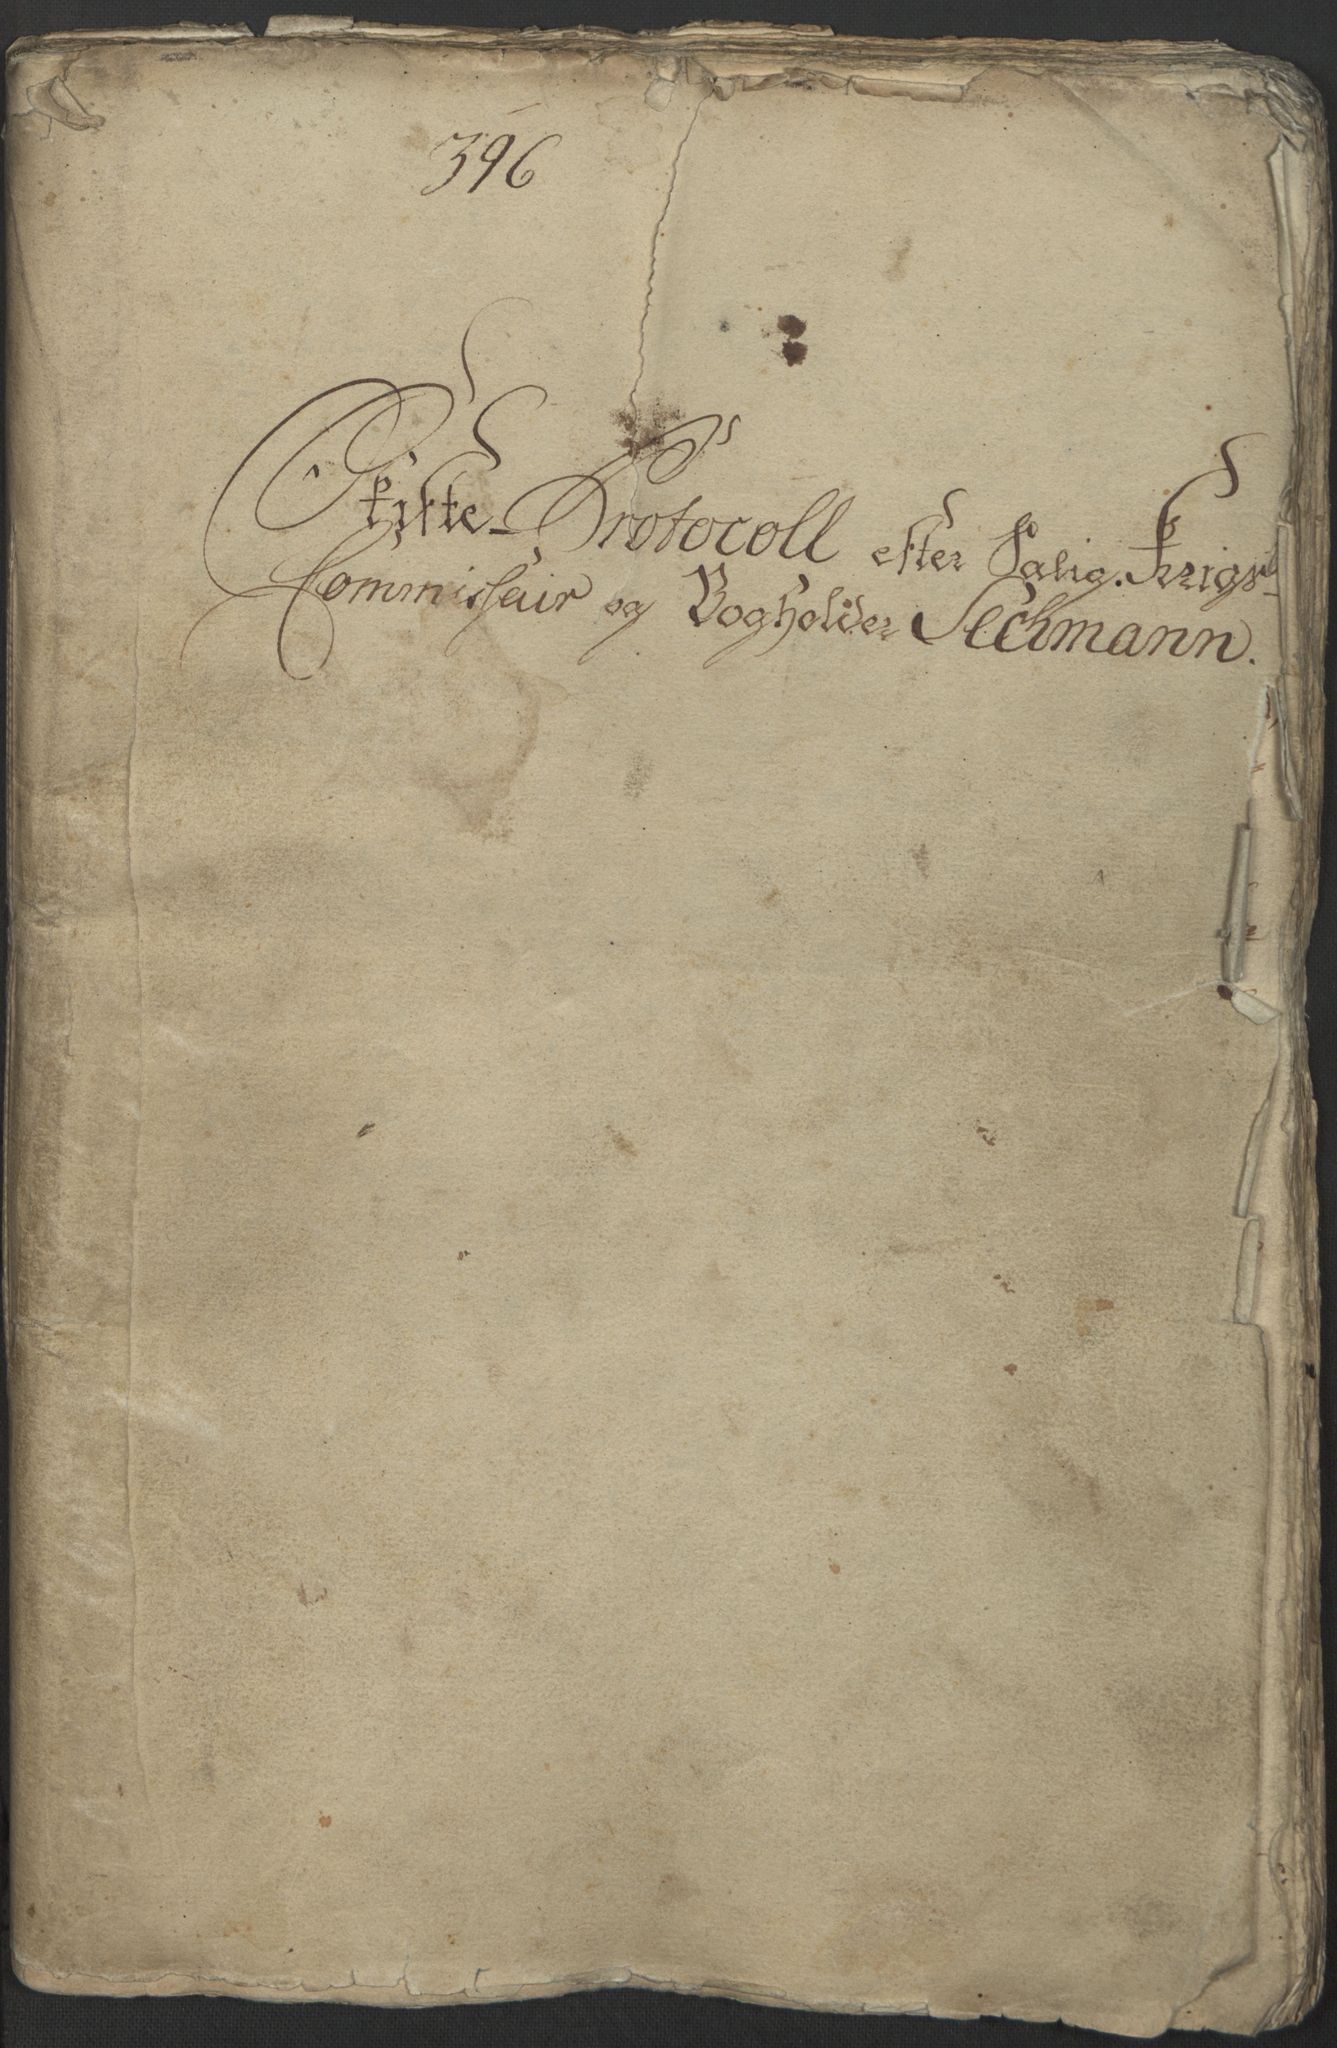 396
Skifte-Protocoll efter Salig. Krigs-
Commissair og Bogholder Sechmann.